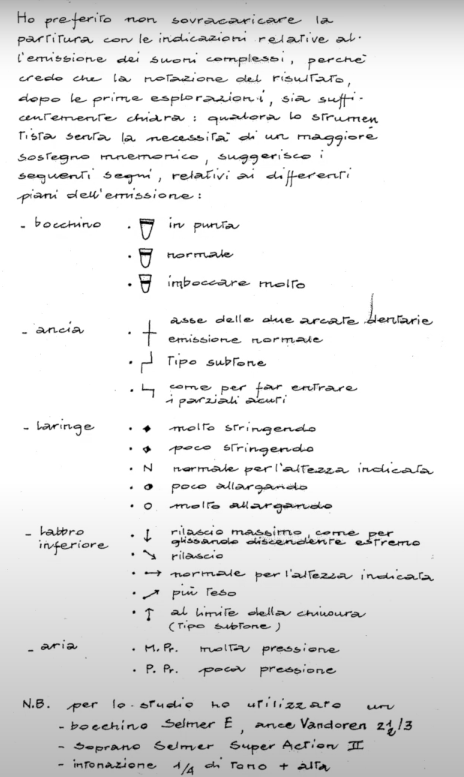 Ho preferito non sovracaricare la
partitura con le indicazioni relative al-
l'emissione dei suoni complessi, perchè
credo che la notazione del risultato,
dopo le prime esplorazioni, sia suffi-
centemente chiara: qualora lo strumen
tista senta la necessità di un maggiore
sostegno mnemonico, suggerisco i
seguenti segni, relativi ai differenti
piani dell'emissione:
- bocchino · in punta
· normale
· imboccare molto
- ancia · asse delle due arcate dentarie
emissione normale
· tipo subtone
· come per far entrare
i parziali acuti
- laringe · ◆ molto stringendo
· poco stringendo
· N normale per l'altezza indicata
· poco allargando
· o molto allargando
- labbro
inferiore · ↓ rilascio massimo, come per
glissando discendente estremo
· ↘ rilascio
· → normale per l'altezza indicata
· ↗ più teso
· ↑ al limite della chiusura
(tipo subtone)
- aria · M.Pr. molta pressione
· P.Pr. poca pressione
N.B. per lo studio ho utilizzato un
- bocchino Selmer E, ance Vandoren 2 1/2/3
- Soprano Selmer Super Action II
- intonazione 1/4 di tono + alta